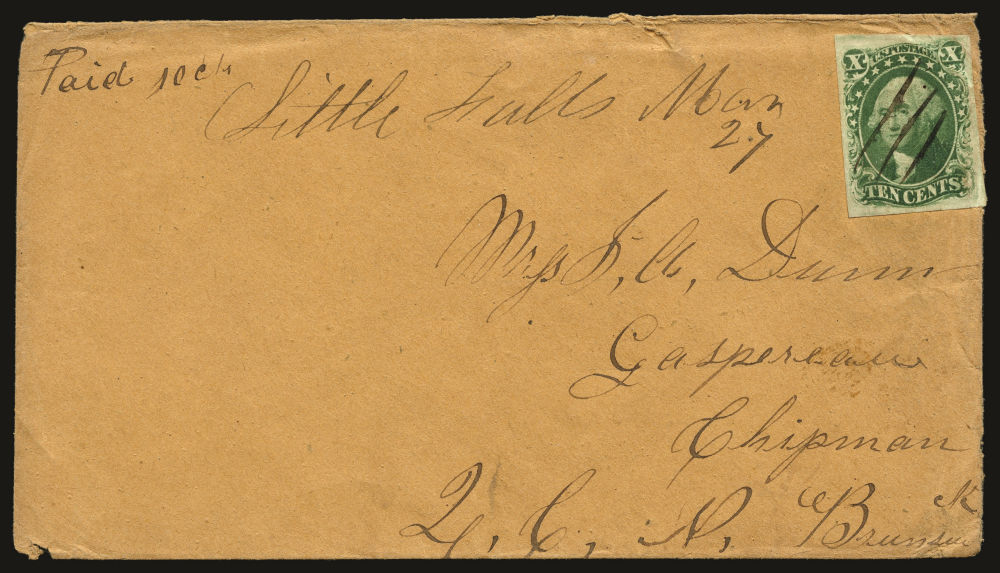 Paid 10 cts
Little Falls Min
27
X U.S. POSTAGE X
TEN CENTS
Mrs J, A, Dunn
Gaspereau
Chipman
Q, C, N, Brunswick